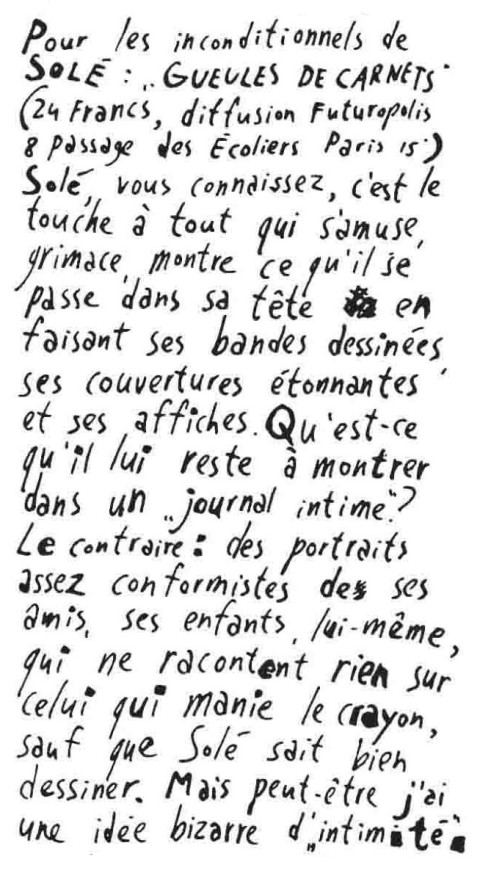 Pour les inconditionnels de
SOLÉ : „GUEULES DE CARNETS"
(24 Francs, diffusion Futuropolis
8 passage des Écoliers Paris 15°)
Solé, vous connaissez, c'est le
touche à tout qui s'amuse,
grimace, montre ce qu'il se
passe dans sa tête en
faisant ses bandes dessinées,
ses couvertures étonnantes
et ses affiches. Qu'est-ce
qu'il lui reste à montrer
dans un „journal intime"?
Le contraire : des portraits
assez conformistes des ses
amis, ses enfants, lui-même,
qui ne racontent rien sur
celui qui manie le crayon,
sauf que Solé sait bien
dessiner. Mais peut-être j'ai
une idée bizarre d'„intimité".